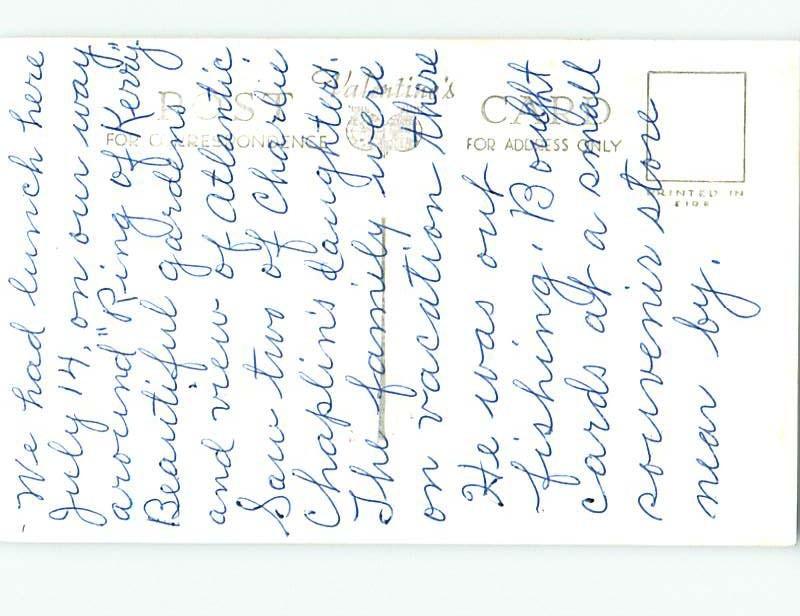 We had lunch here
July 14, on our way
around "Ring of Kerry"
Beautiful gardens
and view of Atlantic.
Saw two of Charlie
Chaplin's daughters.
The family were
on vacation there
He was out
fishing. Bought
cards at a small
souvenir store
near by.
Valentine's
POST CARD
FOR CORRESPONDENCE
FOR ADDRESS ONLY
PRINTED IN
EIRE